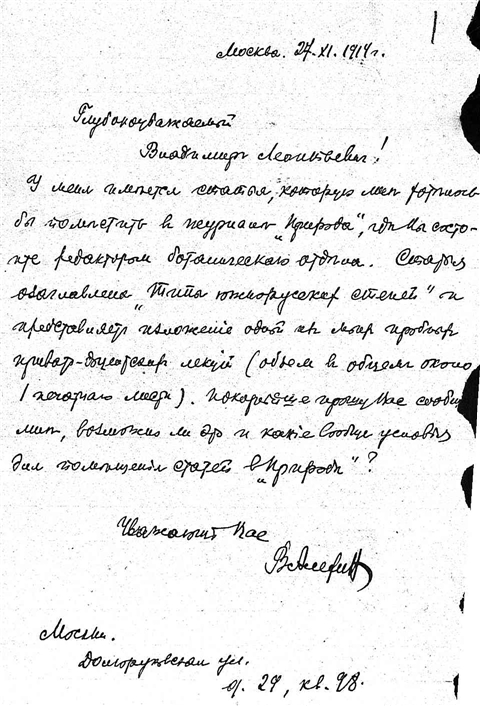 Москва. 27.XI.1914г.
Глубокоуважаемый
Владимир Леонтьевич!
У меня имѣется статья, которую мнѣ хотѣлось
бы помѣстить в журналѣ „Природа", гдѣ Вы состо-
ите редактором ботаническаго отдѣла. Статья
озаглавлена „Типы южнорусских степей" и
представляетъ изложеніе одной из моих пробных
приват-доцентских лекцій (объем в общем около
1 печатнаго листа). Покорнѣйше прошу Вас сообщ.
мнѣ, возможно ли это и какіе вообще условія
для помѣщенія статей в „Природѣ"?
Уважающій Вас
В. Алехин
Москва.
Долгоруковская ул.
д. 29, кв. 98.